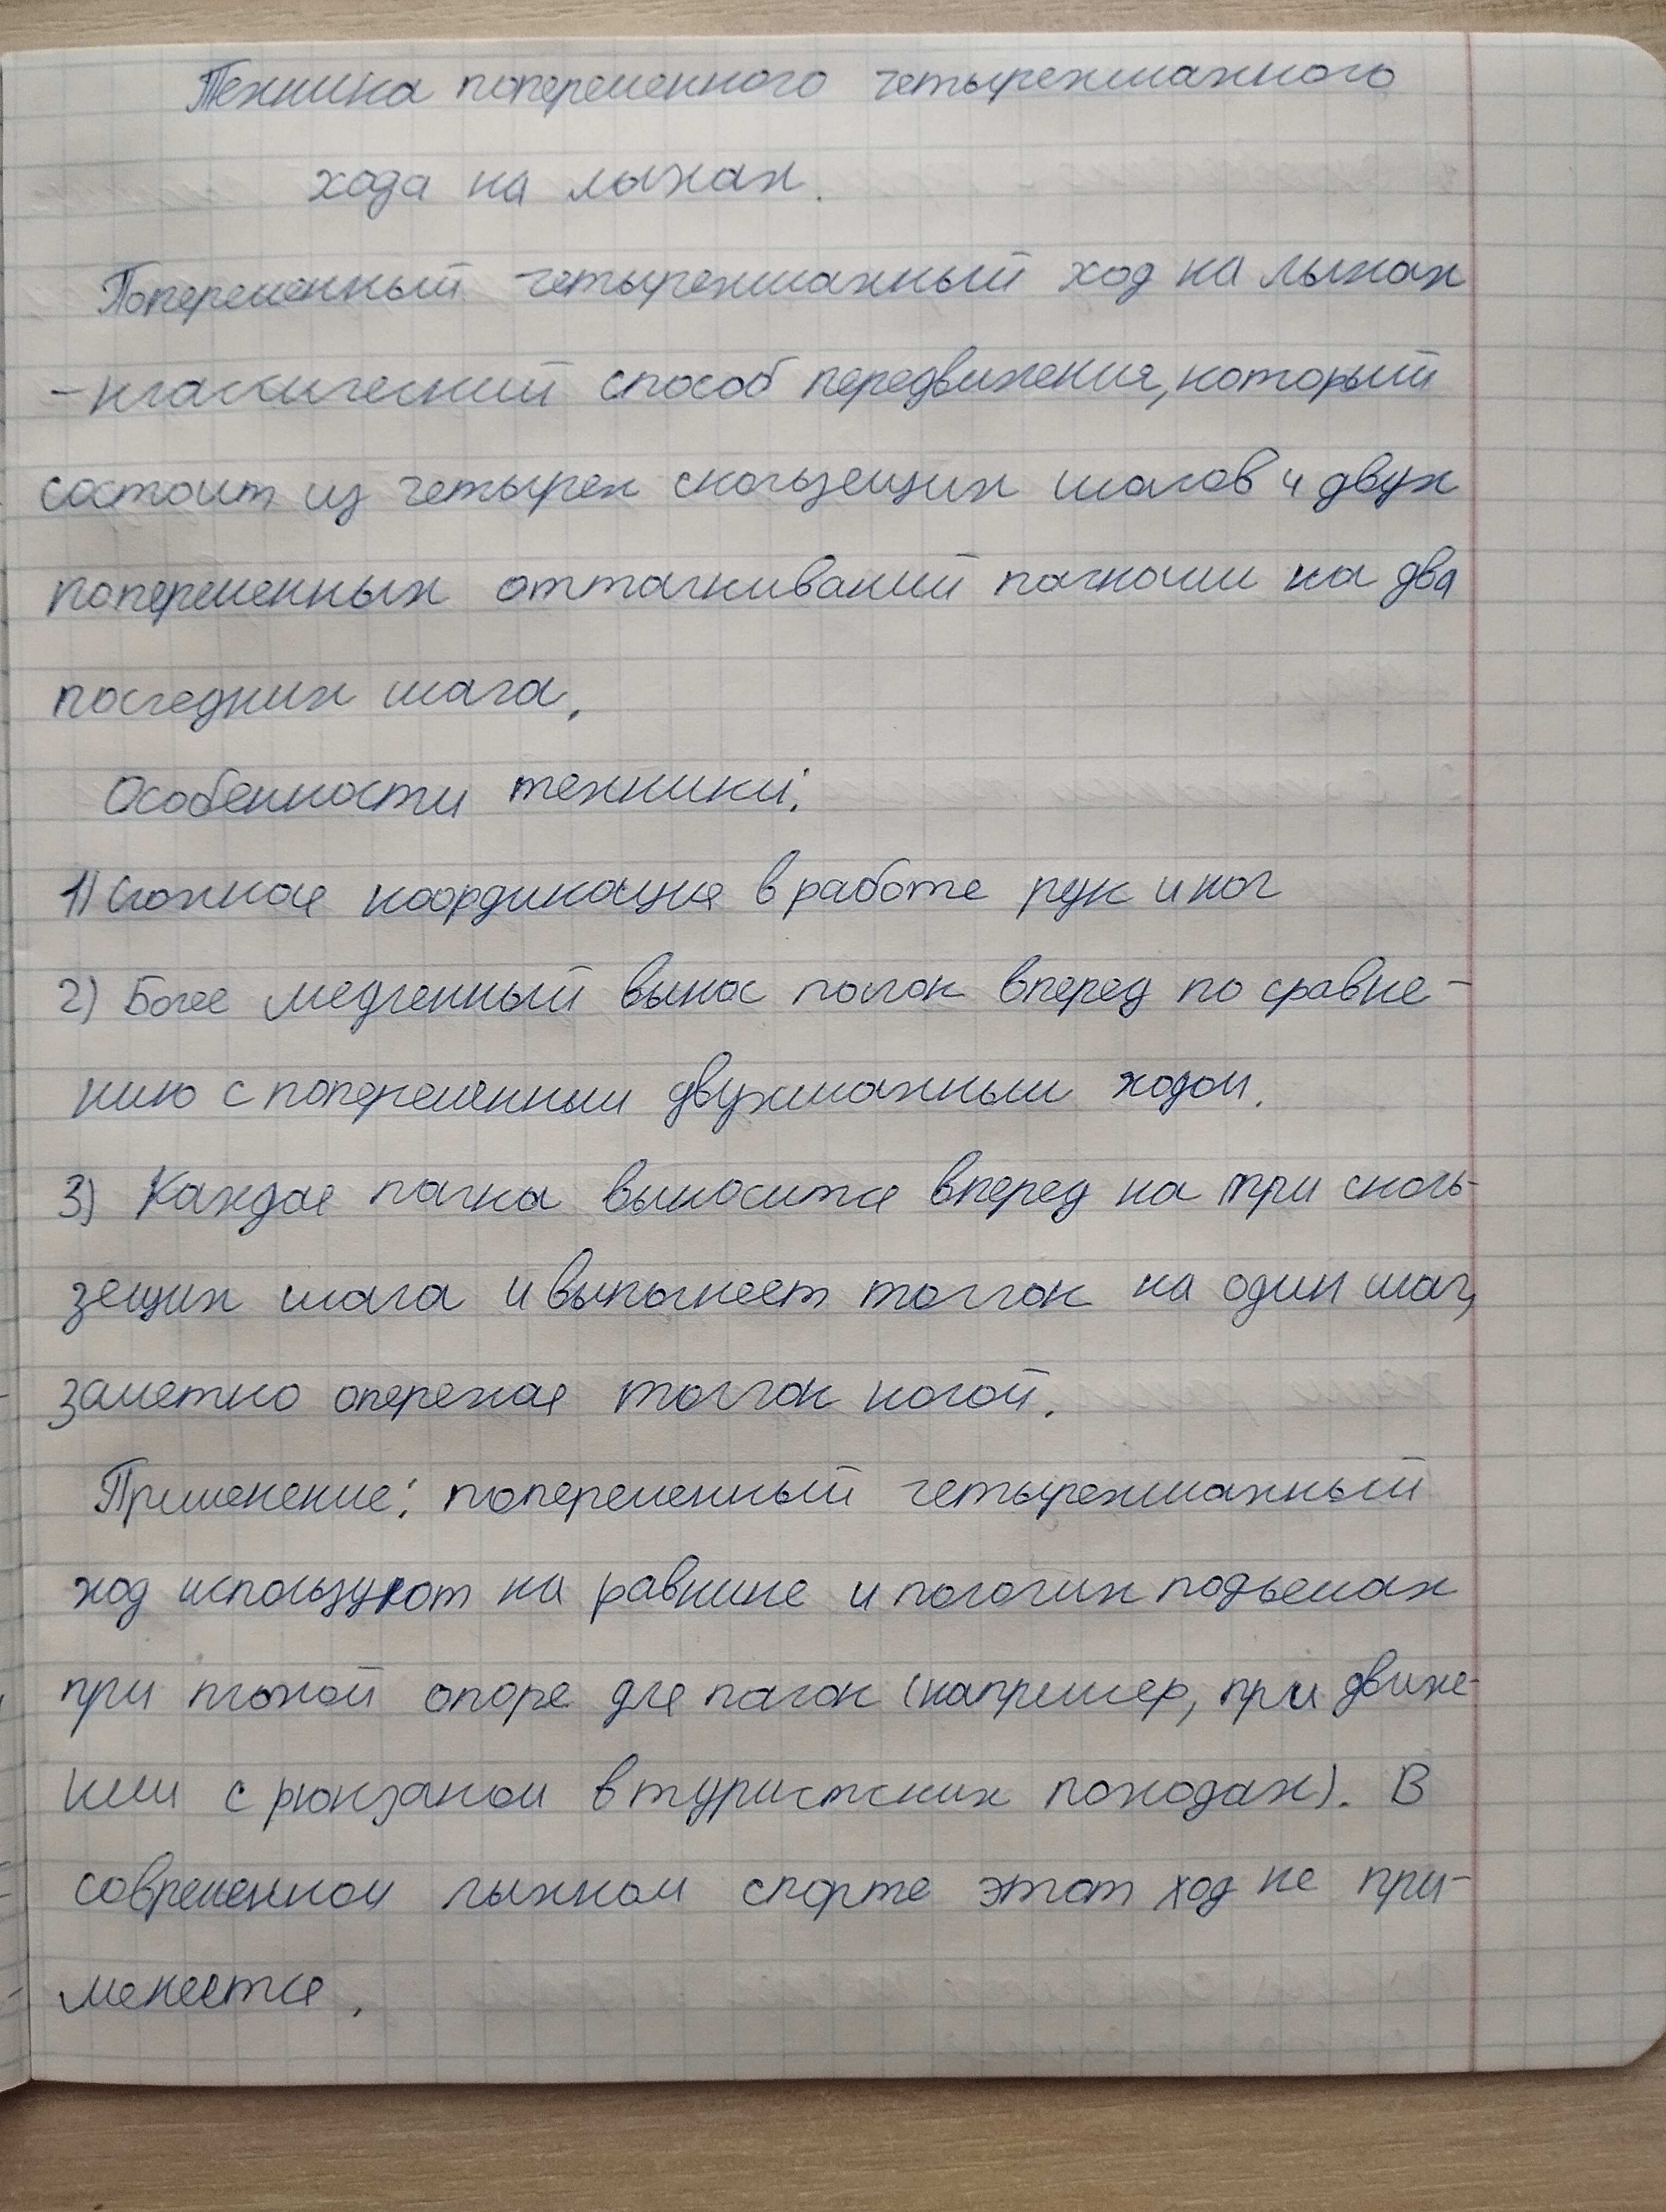 Техника попеременного четырехшажного
хода на лыжах.
Попеременный четырехшажный ход на лыжах
- классический способ передвижения, который
состоит из четырех скользящих шагов и двух
попеременных отталкиваний палками на два
последних шага.
Особенности техники:
1) Сложная координация в работе рук и ног
2) Более медленный вынос полок вперед по сравне-
нию с попеременным двухшажным ходом.
3) Каждая палка выносится вперед на три сколь-
зящих шага и выполняет толчок на один шаг,
заметно опережая толчок ногой.
Применение: попеременный четырехшажный
ход используют на равнине и пологих подъемах
при плохой опоре для палок (например, при движе-
нии с рюкзаком в туристских походах). В
современном лыжном спорте этот ход не при-
меняется.